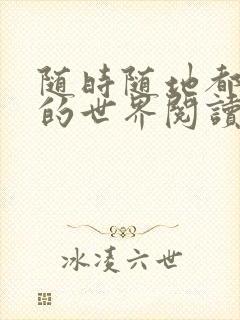 随時随地都
的世界閱讀
冰凌六世